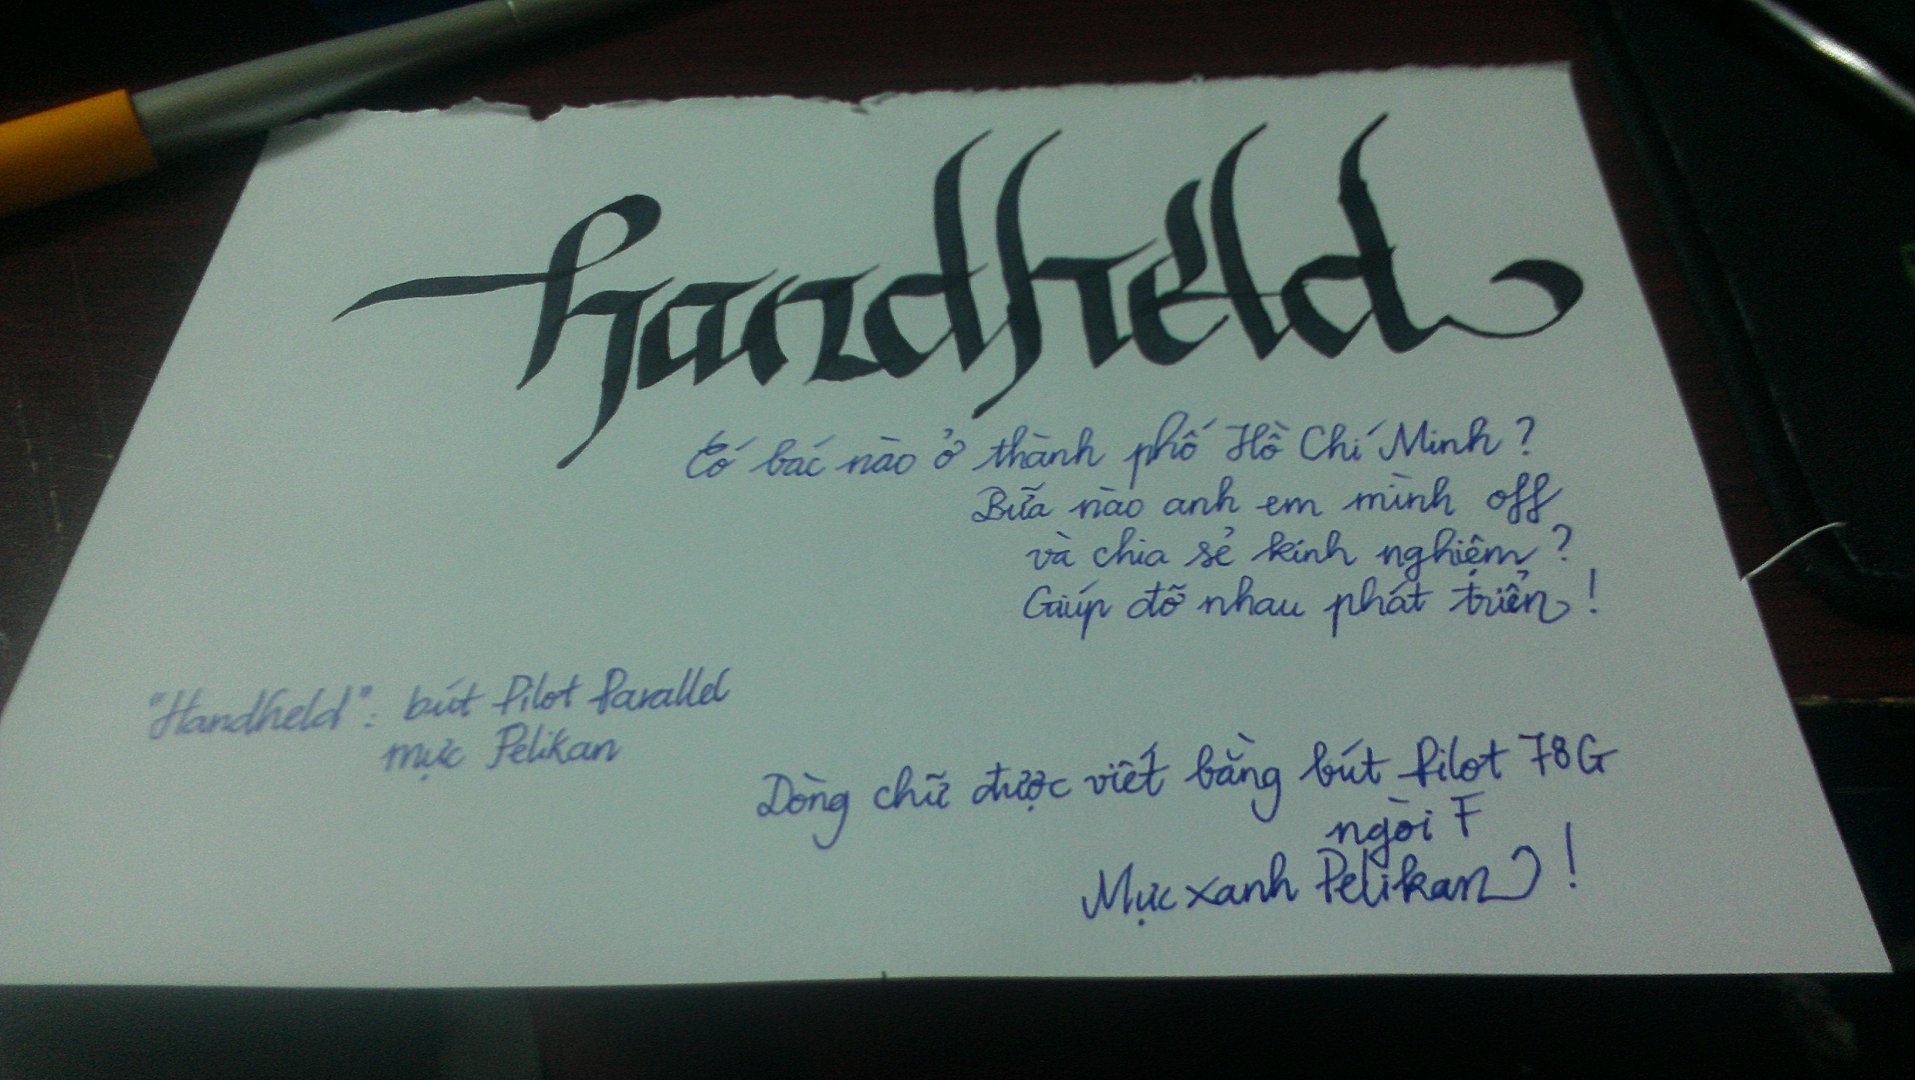 handheld
Có bác nào ở thành phố Hồ Chí Minh?
Bữa nào anh em mình off
và chia sẻ kinh nghiệm?
Giúp đỡ nhau phát triển!
"Handheld": bút Pilot Parallel
mực Pelikan
Dòng chữ được viết bằng bút Pilot 78G
ngòi F
Mực xanh Pelikan!